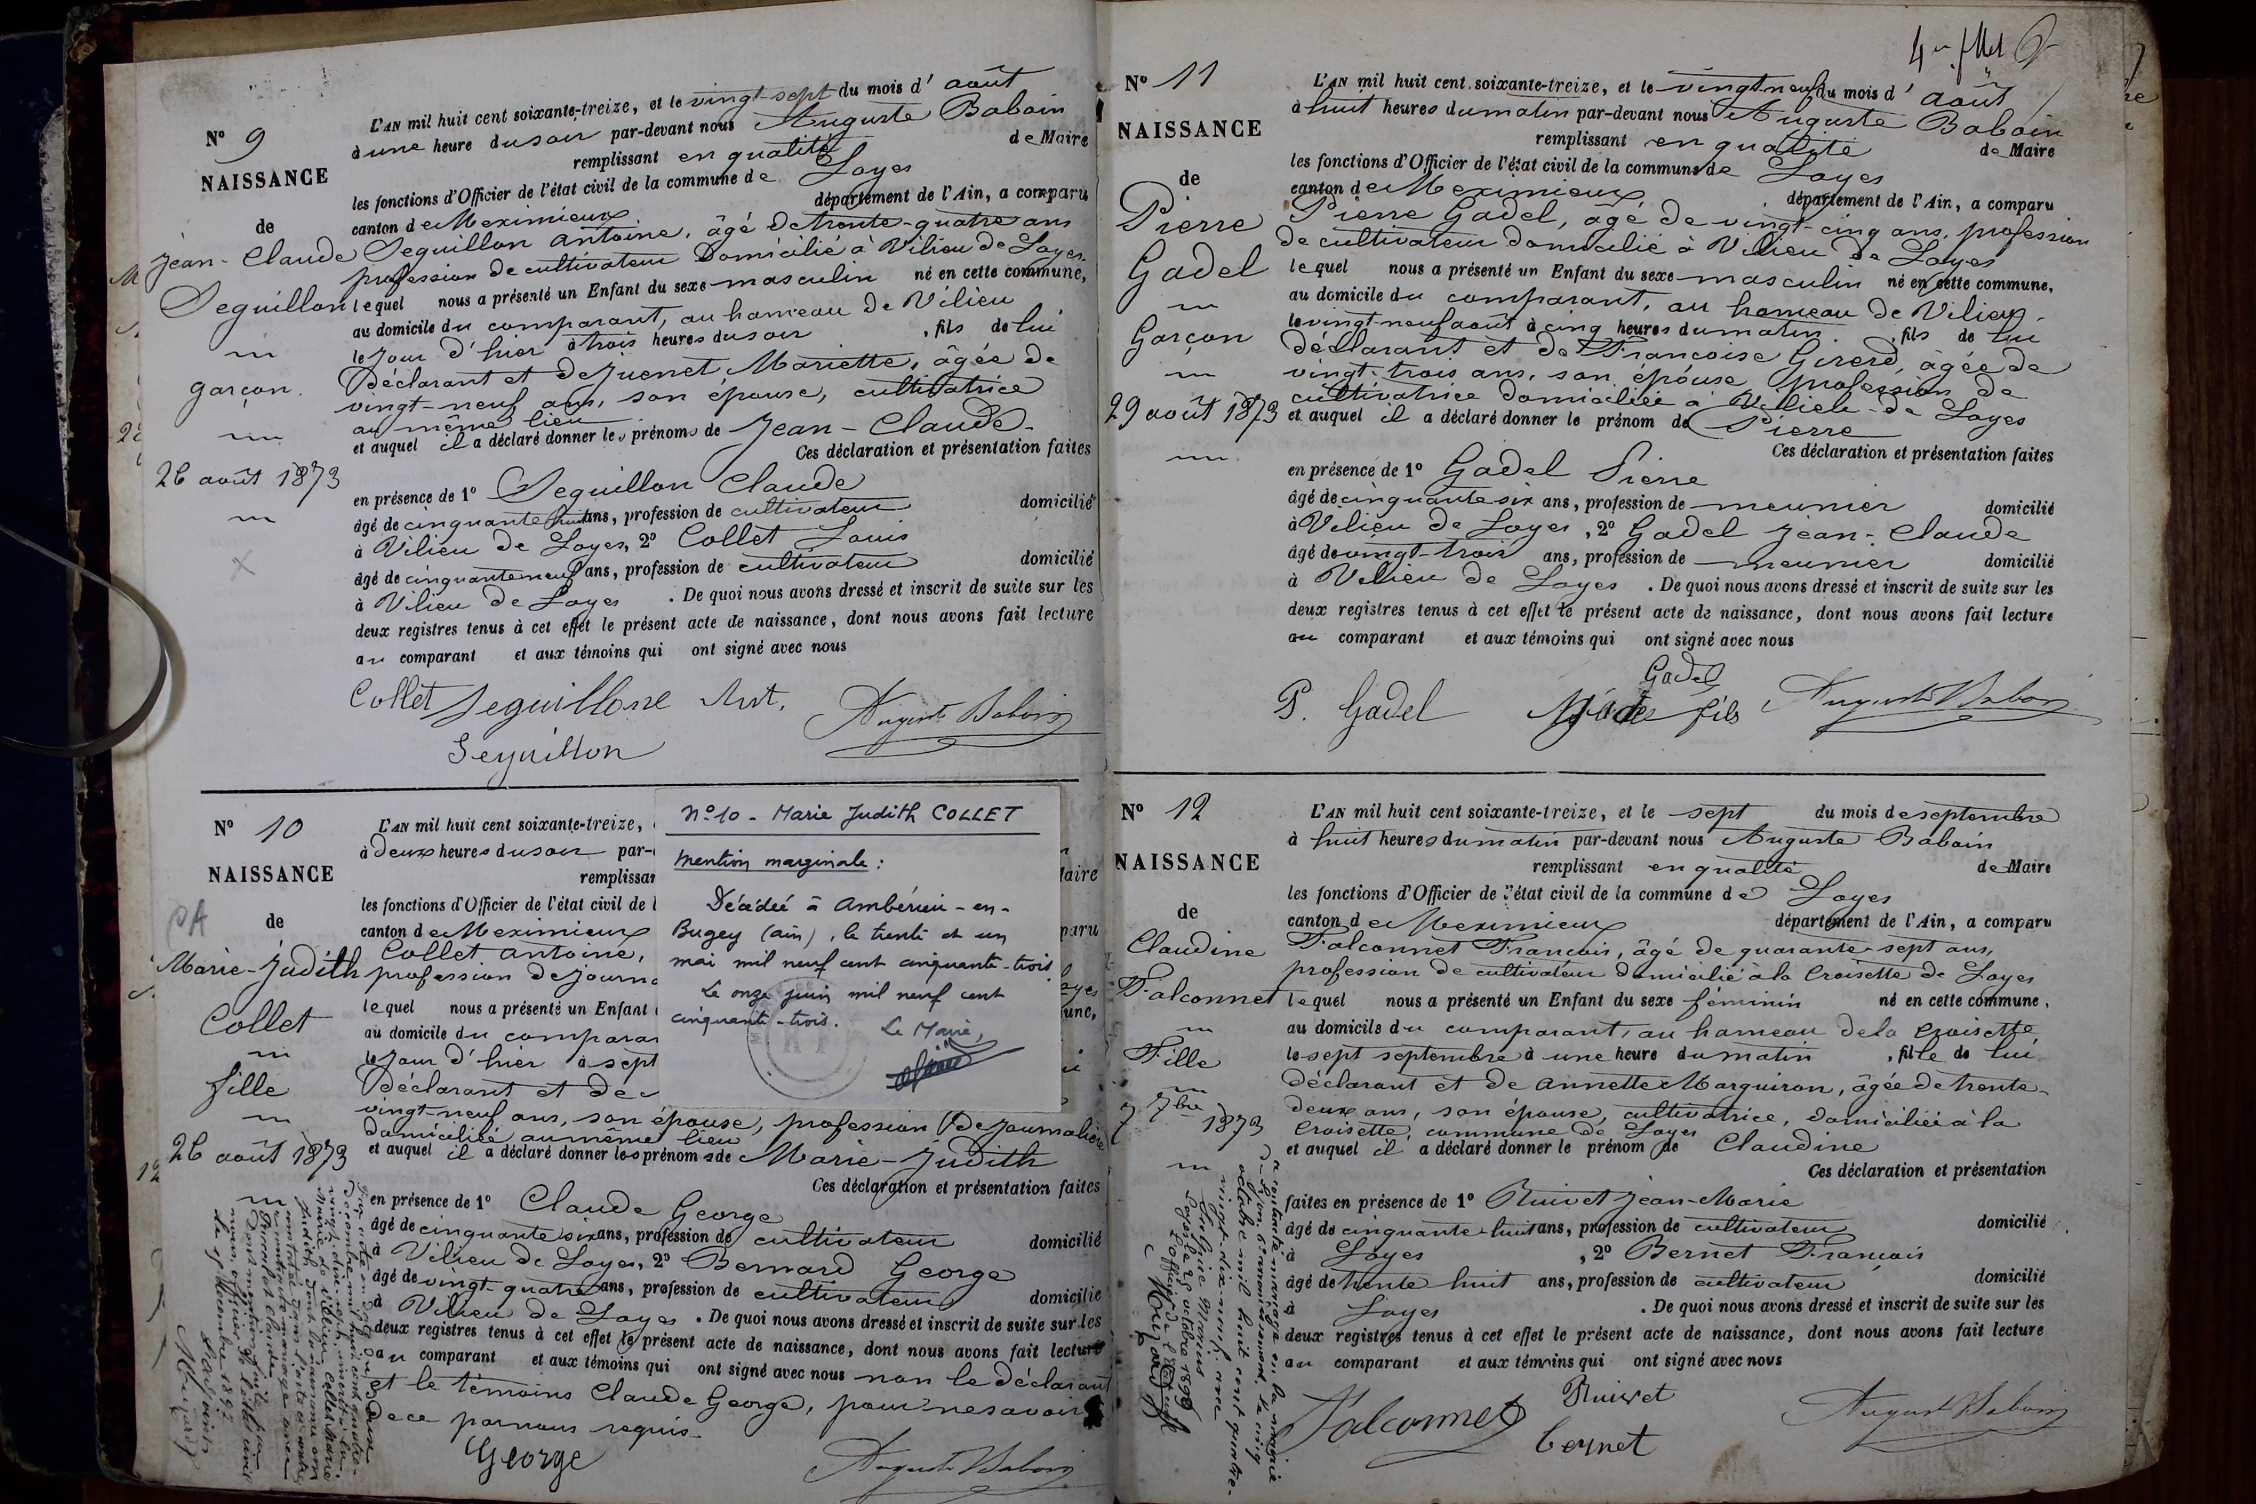 N° 9
NAISSANCE
de
Jean-Claude
Seguillon
garçon.
26 août 1873
L'AN mil huit cent soixante-treize, et le vingt-sept du mois d' août
à une heure du soir par-devant nous Auguste Baboin
remplissant en qualité de Maire
les fonctions d'Officier de l'état civil de la commune de Loyes
canton de Meximieux département de l'Ain, a comparu
Seguillon Antoine, âgé de trente-quatre ans
profession de cultivateur domicilié à Vilieu de Loyes
lequel nous a présenté un Enfant du sexe masculin né en cette commune,
au domicile du comparant, au hameau de Vilieu
le jour d'hier à trois heures du soir , fils de lui
déclarant et de Juenet Mariette, âgée de
vingt-neuf ans, son épouse, cultivatrice
au même lieu
et auquel il a déclaré donner les prénoms de Jean-Claude.
Ces déclaration et présentation faites
en présence de 1° Seguillon Claude
âgé de cinquante huit ans, profession de cultivateur domicilié
à Vilieu de Loyes, 2° Collet Louis
âgé de cinquante neuf ans, profession de cultivateur domicilié
à Vilieu de Loyes . De quoi nous avons dressé et inscrit de suite sur les
deux registres tenus à cet effet le présent acte de naissance, dont nous avons fait lecture
au comparant et aux témoins qui ont signé avec nous
Collet Seguillone Ant. Auguste Baboin
Seguillon
N° 10
NAISSANCE
de
Marie-Judith
Collet
fille
26 août 1873
L'AN mil huit cent soixante-treize,
à deux heures du soir par-
remplissan
les fonctions d'Officier de l'état civil de l
canton de Meximieux
Collet Antoine,
profession de journa
lequel nous a présenté un Enfant
au domicile du comparan
le jour d'hier à sept
déclarant et de
vingt-neuf ans, son épouse, profession de journalière
domiciliée au même lieu
et auquel il a déclaré donner les prénoms de Marie-Judith
Ces déclaration et présentation faites
en présence de 1° Claude George
âgé de cinquante six ans, profession de cultivateur domicilié
à Vilieu de Loyes, 2° Bernard George
âgé de vingt-quatre ans, profession de cultivateur domicilié
à Vilieu de Loyes . De quoi nous avons dressé et inscrit de suite sur les
deux registres tenus à cet effet le présent acte de naissance, dont nous avons fait lecture
au comparant et aux témoins qui ont signé avec nous non le déclarant
et le témoins Claude George, pour ne savoir
de ce par nous requis.
George Auguste Baboin
N° 10 - Marie Judith COLLET
Mention marginale :
Décédée à Ambérieu-en-
Bugey (Ain), le trente et un
mai mil neuf cent cinquante-trois.
Le onze juin mil neuf cent
cinquante-trois. Le Maire,
4me fllet
N° 11
NAISSANCE
de
Pierre
Gadel
Garçon
29 août 1873
L'AN mil huit cent soixante-treize, et le vingt neuf du mois d' août
à huit heures du matin par-devant nous Auguste Baboin
remplissant en qualité de Maire
les fonctions d'Officier de l'état civil de la commune de Loyes
canton de Meximieux département de l'Ain, a comparu
Pierre Gadel, âgé de vingt-cinq ans, profession
de cultivateur domicilié à Vilieu de Loyes
lequel nous a présenté un Enfant du sexe masculin né en cette commune,
au domicile du comparant, au hameau de Vilieu.
le vingt neuf août à cinq heures du matin , fils de lui
déclarant et de Françoise Girerd, âgée de
vingt-trois ans, son épouse profession de
cultivatrice domiciliée à Vilieu de Loyes
et auquel il a déclaré donner le prénom de Pierre
Ces déclaration et présentation faites
en présence de 1° Gadel Pierre
âgé de cinquante six ans, profession de meunier domicilié
à Vilieu de Loyes, 2° Gadel Jean-Claude
âgé de vingt-trois ans, profession de meunier domicilié
à Vilieu de Loyes . De quoi nous avons dressé et inscrit de suite sur les
deux registres tenus à cet effet le présent acte de naissance, dont nous avons fait lecture
au comparant et aux témoins qui ont signé avec nous
Gadel
P. Gadel fils Auguste Baboin
N° 12
NAISSANCE
de
Claudine
Falconnet
Fille
7 7bre 1873
L'AN mil huit cent soixante-treize, et le sept du mois de septembre
à huit heures du matin par-devant nous Auguste Baboin
remplissant en qualité de Maire
les fonctions d'Officier de l'état civil de la commune de Loyes
canton de Meximieux département de l'Ain, a comparu
Falconnet François, âgé de quarante-sept ans,
profession de cultivateur domicilié à la Croisette de Loyes
lequel nous a présenté un Enfant du sexe féminin né en cette commune,
au domicile du comparant, au hameau de la Croisette
le sept septembre à une heure du matin , fille de lui
déclarant et de Annette Marguiron, âgée de trente-
deux ans, son épouse, cultivatrice, domiciliée à la
Croisette, commune de Loyes
et auquel il a déclaré donner le prénom de Claudine
Ces déclaration et présentation
faites en présence de 1° Ruivet Jean-Marie
âgé de cinquante-huit ans, profession de cultivateur domicilié
à Loyes , 2° Bernet François
âgé de trente huit ans, profession de cultivateur domicilié
à Loyes . De quoi nous avons dressé et inscrit de suite sur les
deux registres tenus à cet effet le présent acte de naissance, dont nous avons fait lecture
au comparant et aux témoins qui ont signé avec nous
Ruivet
Falconnet Bernet Auguste Baboin